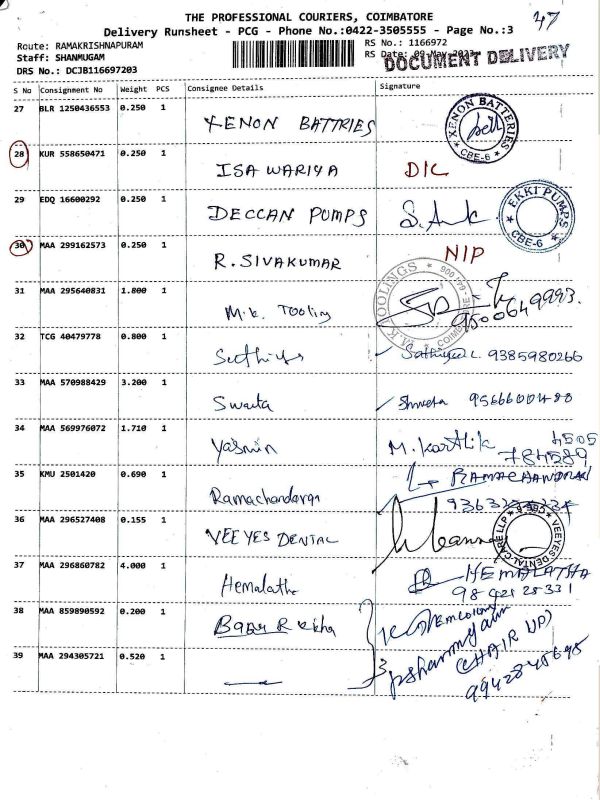 THE PROFESSIONAL COURIERS, COIMBATORE
47
Delivery Runsheet - PCG - Phone No.:0422-3505555 - Page No.:3
Route: RAMAKRISHNAPURAM
RS No.: 1166972
Staff: SHANMUGAM
RS Date: 09-May-2023
DOCUMENT DELIVERY
DRS No.: DCJB116697203
S No Consignment No Weight PCS Consignee Details Signature
27 BLR 1250436553 0.250 1 XENON BATTRIES
XENON BATTERIES CBE-6
28 KUR 558650471 0.250 1 ISAWARIYA D/C
29 EDQ 16600292 0.250 1 DECCAN PUMPS
EKKI PUMPS CBE-6
30 MAA 299162573 0.250 1 R. SIVAKUMAR NIP
31 MAA 295640831 1.800 1 M.k. Tooling 9500649993.
M.K TOOLINGS
32 TCG 40479778 0.800 1 Sathiya L. 9385980266
33 MAA 570988429 3.200 1 Sweta Shweta
34 MAA 569976072 1.710 1 Yasmin M. Karthik 4505
784589
35 KMU 2501420 0.690 1 Ramachandarga RAMACHANDRAN
36 MAA 296527408 0.155 1 VEEYES DENTAL
VEEYES DENTAL CARE LLP
37 MAA 296860782 4.000 1 Hemalatha HEMALATHA
9842128331
38 MAA 859890592 0.200 1
39 MAA 294305721 0.520 1 (HAIR UP)
9942845695